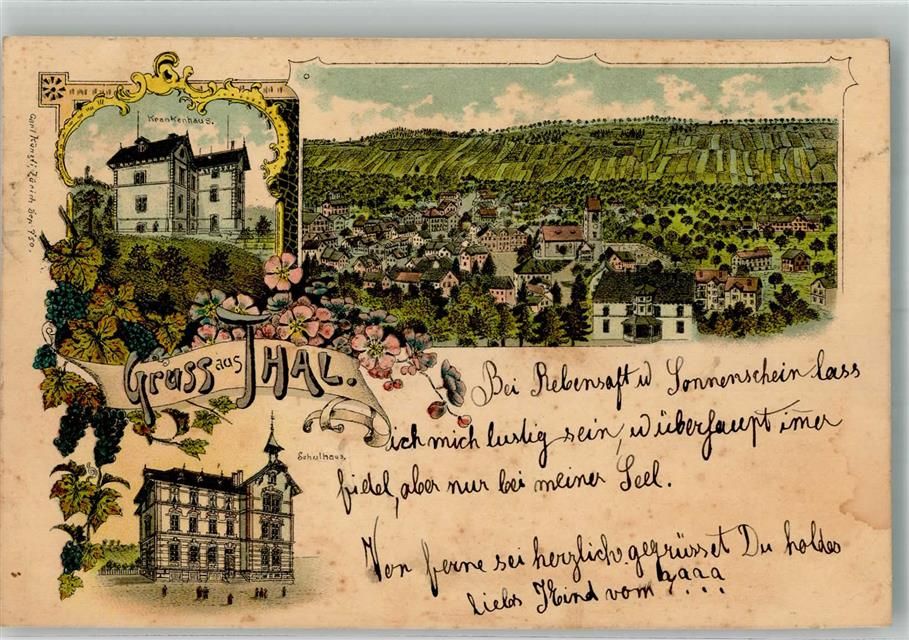 Krankenhaus.
Carl Künzli, Zürich Dep. 750.
Gruss aus THAL.
Schulhaus.
Bei Rebensaft u Sonnenschein lass
ich mich lustig sein, u überhaupt imer
fidel, aber nur bei meiner Seel.
Von ferne sei herzlich gegrüsset Du holdes
liebs Kind vom